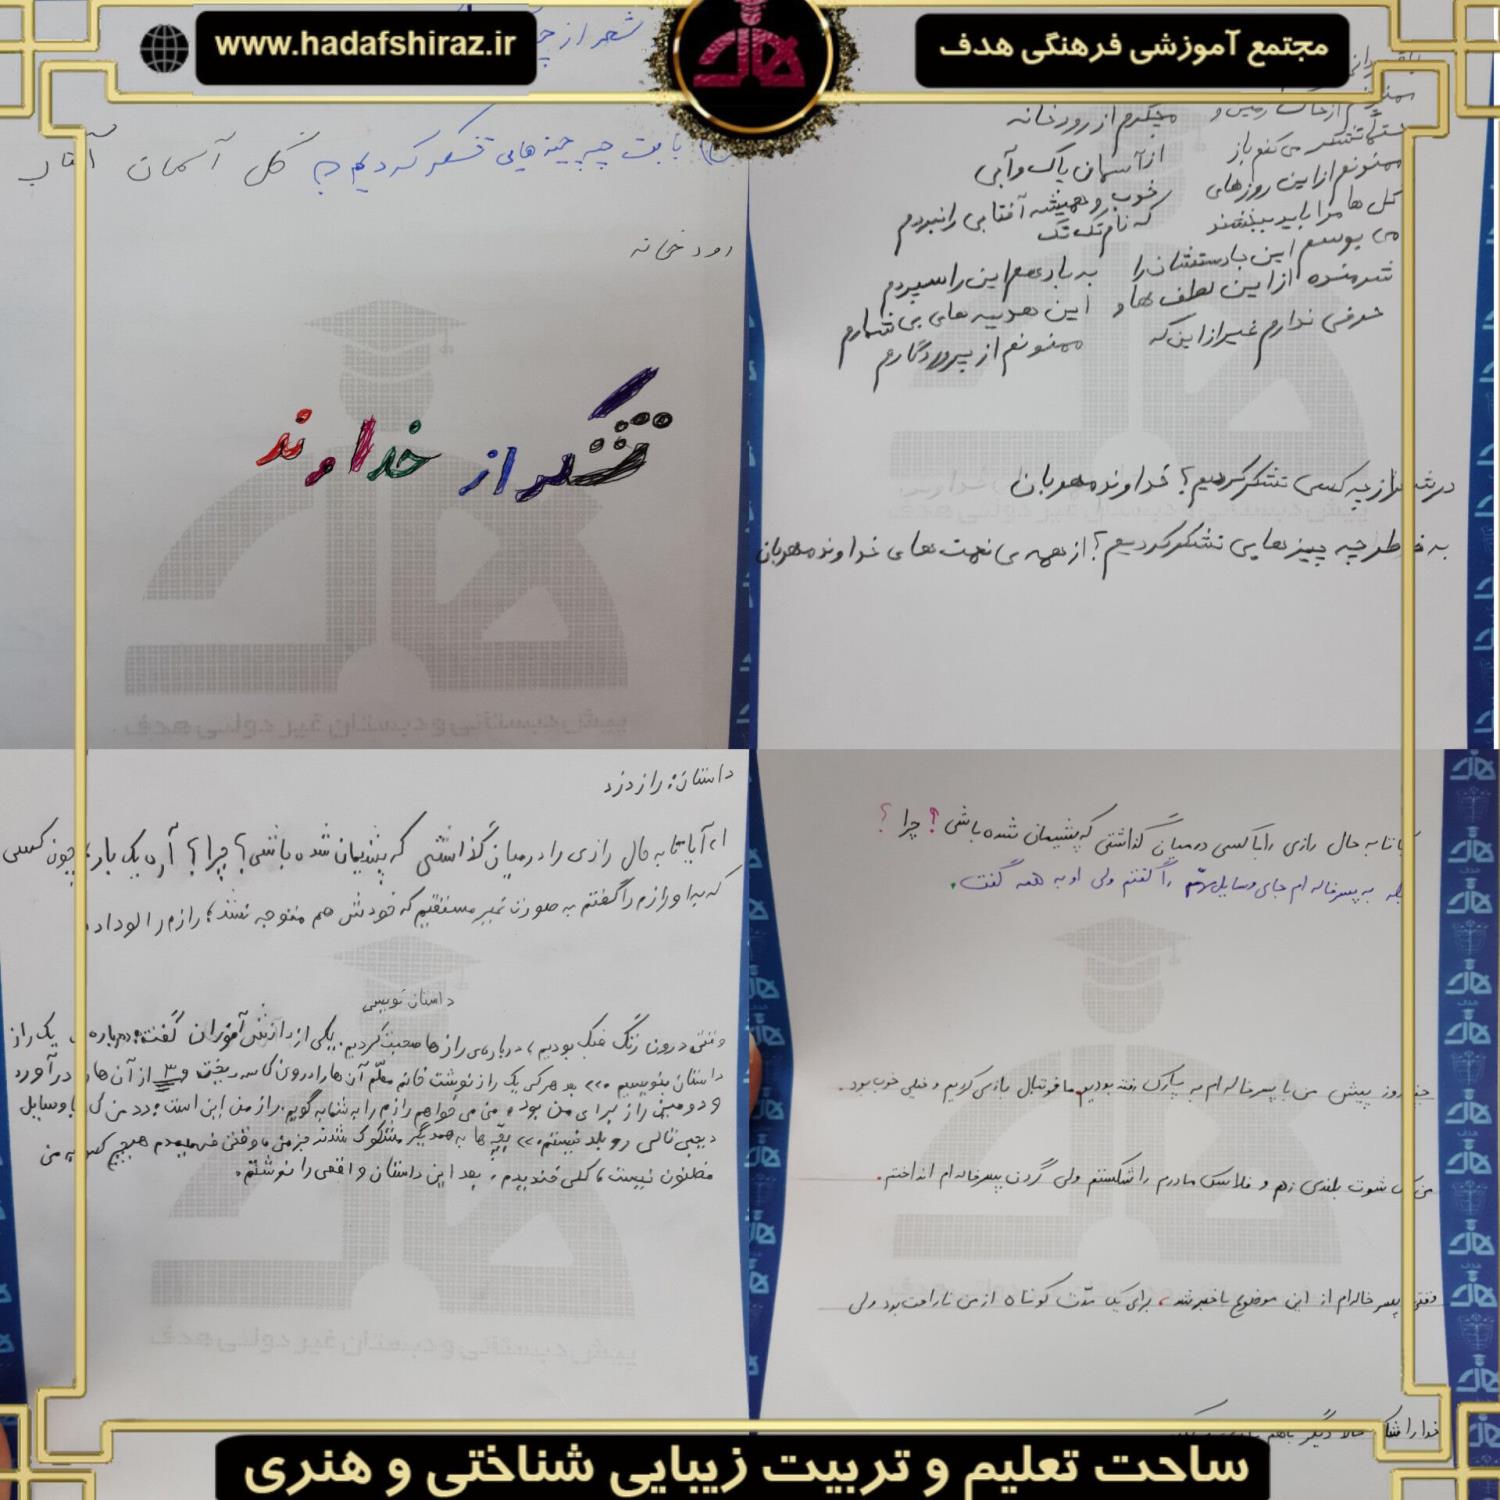 www.hadafshiraz.ir
مجتمع آموزشی فرهنگی هدف
شعر از
بابت چه چیزهایی تشکر کردیم؟ گل آسمان آفتاب
رودخانه
تشکر از خداوند
ممنونم از خاک زمین و متشکرم از رودخانه
تشکر می کنم باز از آسمان پاک و آبی
ممنونم از این روزهای خوب و همیشه آفتابی
گل ها مرا باید ببخشند که نام تک تک را نبردم
می بوسم این بار دستشان را به باد هم این را سپردم
شرمنده از این لطف ها و این هدیه های بی شمارم
حرفی ندارم غیر از این که ممنونم از پروردگارم
در شعر از چه کسی تشکر کردیم؟ خداوند مهربان
به خاطر چه چیزهایی تشکر کردیم؟ از همه ی نعمت های خداوند مهربان
داستان: راز دزد
۱. آیا تا به حال رازی را در میان گذاشتی که پشیمان شده باشی؟ چرا؟ آره یک بار، چون کسی
که به او رازم را گفتم به صورت غیر مستقیم که خودش هم متوجه نشد، رازم را لو داد.
داستان نویسی
وقتی درون زنگ فبک بودیم، درباره ی رازها صحبت کردیم. یکی از دانش آموزان گفت: درباره ی یک راز
داستان بنویسیم. بعد هر کی یک راز نوشت خانم معلّم آن ها را درون کاسه ریخت و ۳ از آن ها در آورد
و دومین راز برای من بود. من می خواهم رازم را به شما بگویم. راز من این است: من کار با وسایل
دیجی تالی رو بلد نیستم. بقیّه ها به همدیگر مشکوک شدند جز من، وقتی فهمیدم هیچ کس به من
مظنون نیست، کلی خندیدم. بعد این داستان واقعی را نوشتم.
آیا تا به حال رازی را با کسی در میان گذاشتی که پشیمان شده باشی؟ چرا؟
بله به پسرخاله ام جای وسایل مهّم را گفتم ولی او به همه گفت.
چند روز پیش من با پسرخاله ام به پارک رفته بودیم. ما فوتبال بازی کردیم و خیلی خوب بود.
من یک شوت بلندی زدم و فلاسک مادرم را شکستم ولی گردن پسرخاله ام انداختم.
وقتی پسرخاله ام از این موضوع باخبر شد، برای یک مدّت کوتاه از من ناراحت بود ولی
خدا را شکر حالا دیگر باهم
ساحت تعلیم و تربیت زیبایی شناختی و هنری